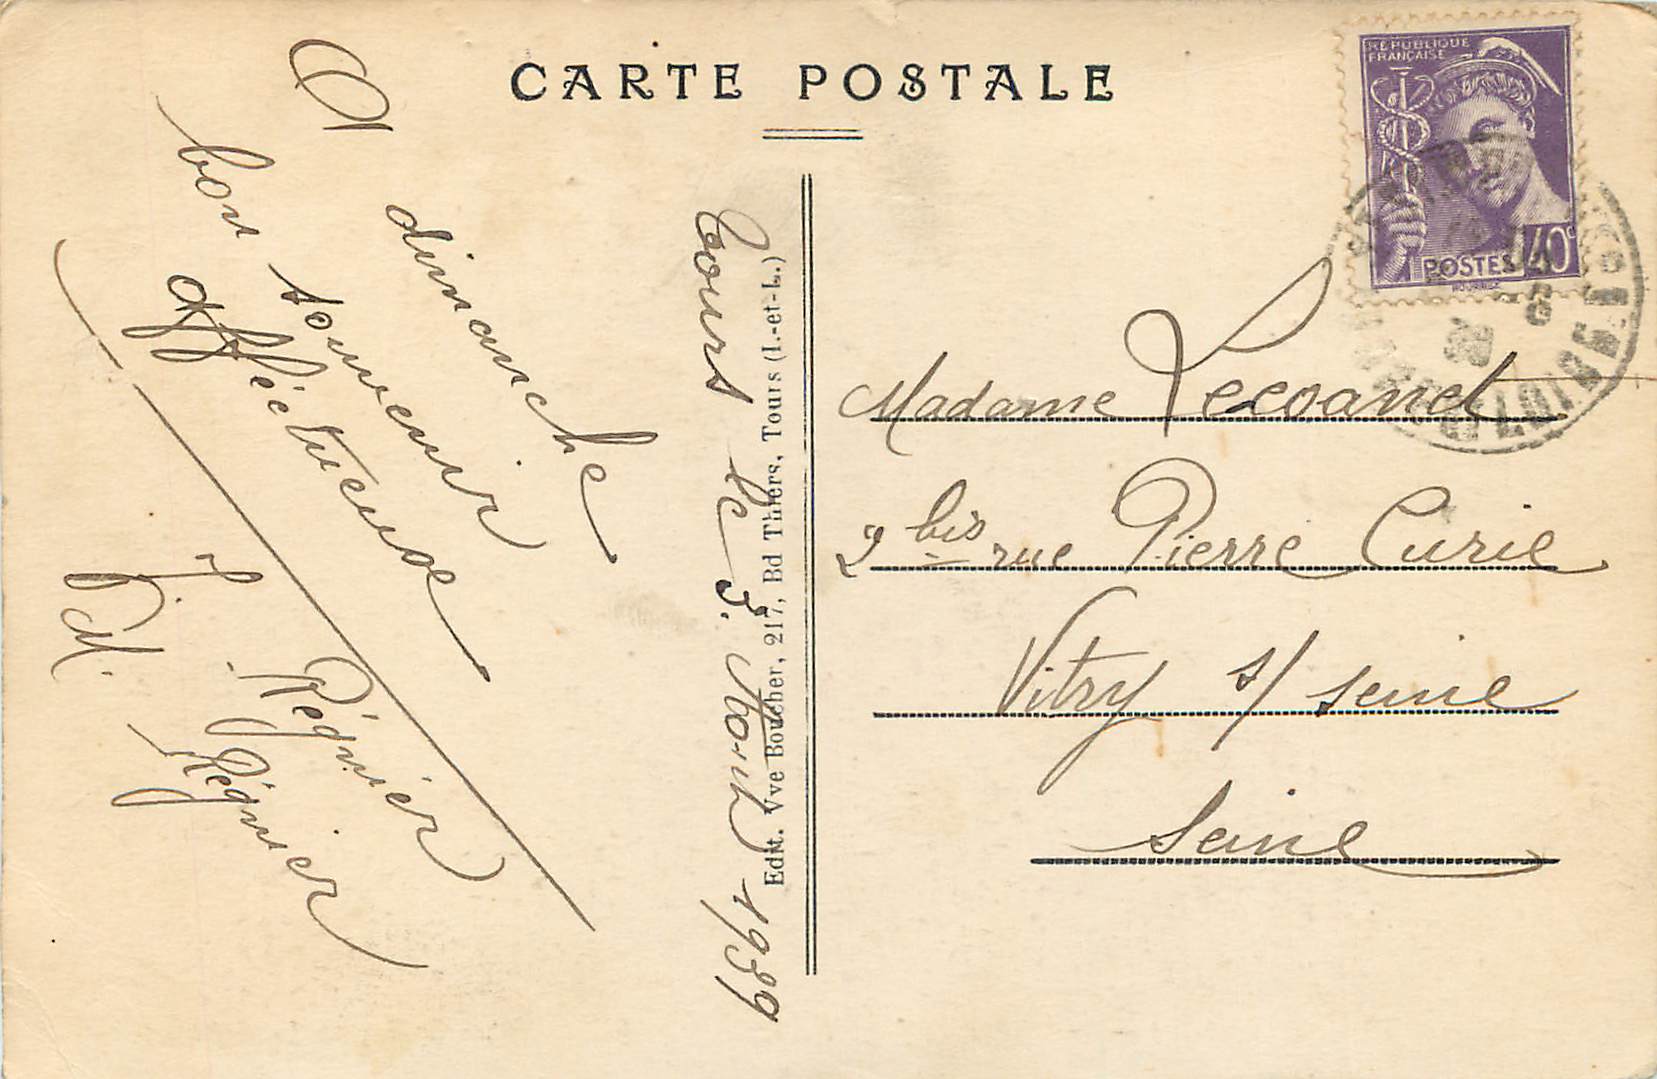 CARTE POSTALE
RÉPUBLIQUE
FRANÇAISE
POSTES 40c
Tours le 3. Aout 1939
A dimanche
bon souvenir
affectueuse
J. Régnier
M. Régnier
Edit. Vve Boucher, 217, Bd Thiers, Tours (I.-et-L.)
Madame Lecoanet
2 bis rue Pierre Curie
Vitry s/ seine
Seine